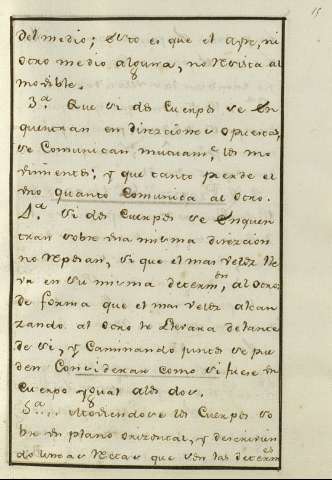 15
del medio; esto es que el ayre, ni
otro medio alguna, no resista al
movible.
3.a Que si dos Cuerpos se en
quentran en direzciones opuestas,
se Comunican mutuam.e los mo
vimientos; y que tanto pierde el
uno quanto Comunica al otro.
4.a Si dos Cuerpos se enquen
tran sobre una misma direzcion
no reposan, si que el mas veloz lle
va en su misma determ.on al otro
de forma que el mas veloz alcan
zando al otro le llevara delante
de si, y Caminando juntos se pue
den Considerar como si fuese un
Cuerpo ygual a los dos.
5.a Moviendose los Cuerpos so
bre un plano orizontal, y descrivien
do lineas rectas que son las determ.es